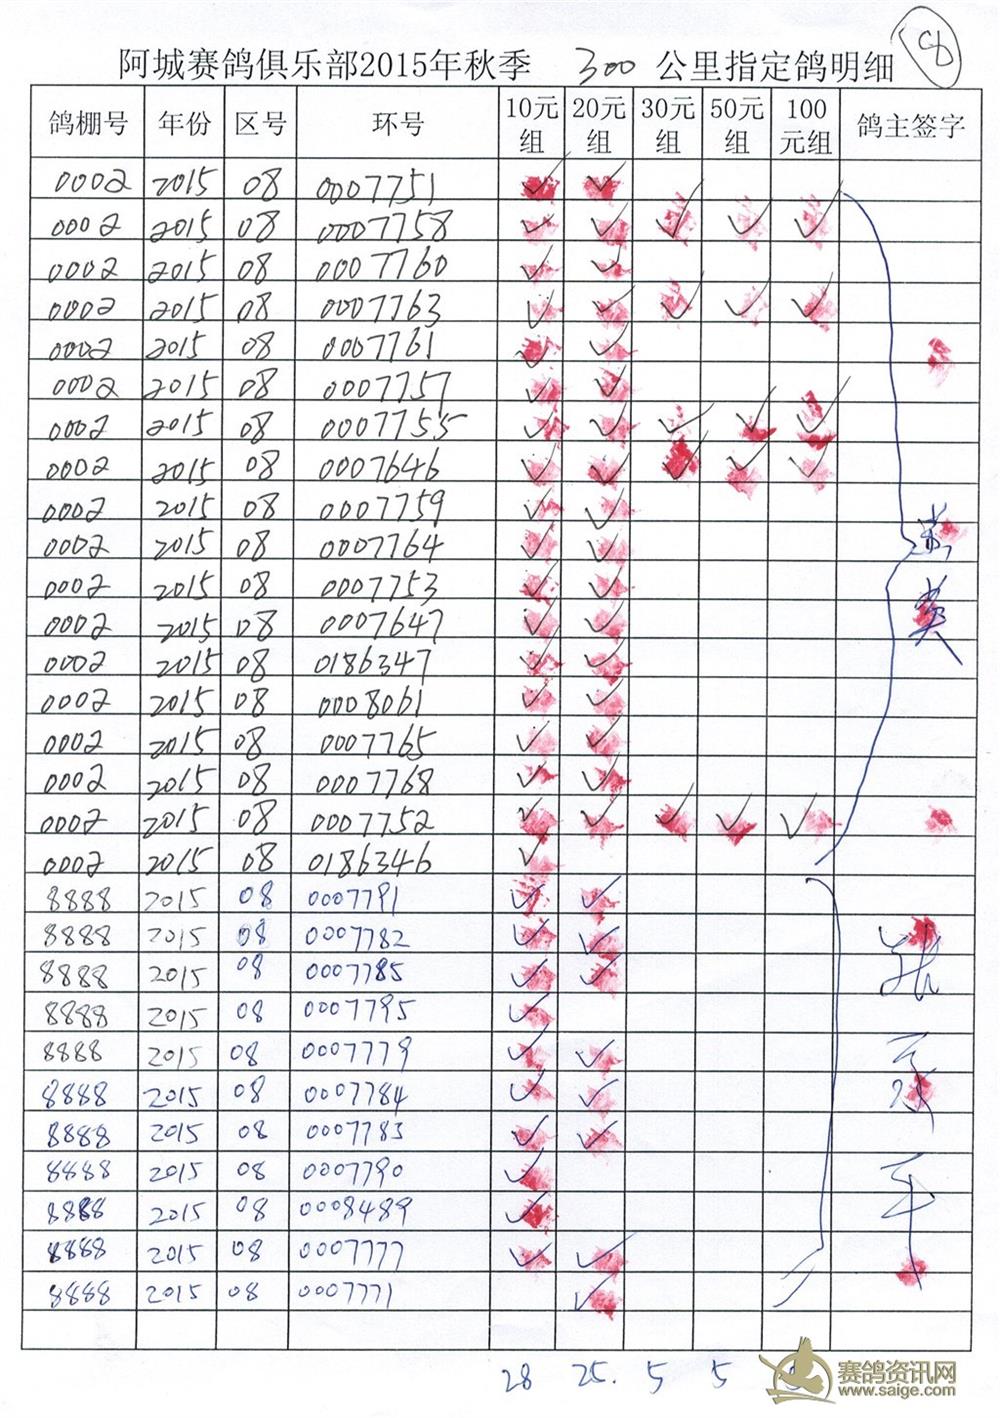 8
阿城赛鸽俱乐部2015年秋季 300 公里指定鸽明细
鸽棚号 年份 区号 环号 10元组 20元组 30元组 50元组 100元组 鸽主签字
0002 2015 08 0007751 ✓ ✓
0002 2015 08 0007758 ✓ ✓ ✓ ✓ ✓
0002 2015 08 0007760 ✓ ✓
0002 2015 08 0007763 ✓ ✓ ✓ ✓ ✓
0002 2015 08 0007761 ✓ ✓
0002 2015 08 0007757 ✓ ✓
0002 2015 08 0007755 ✓ ✓ ✓ ✓ ✓
0002 2015 08 0007646 ✓ ✓ ✓ ✓ ✓
0002 2015 08 0007759 ✓ ✓
0002 2015 08 0007764 ✓ ✓
0002 2015 08 0007753 ✓ ✓
0002 2015 08 0007647 ✓ ✓
0002 2015 08 0186347 ✓ ✓
0002 2015 08 0008061 ✓ ✓
0002 2015 08 0007765 ✓ ✓
0002 2015 08 0007768 ✓ ✓
0002 2015 08 0007752 ✓ ✓ ✓ ✓ ✓
0002 2015 08 0186346 ✓
8888 2015 08 0007791 ✓ ✓
8888 2015 08 0007782 ✓ ✓
8888 2015 08 0007785 ✓ ✓
8888 2015 08 0007795 ✓
8888 2015 08 0007779 ✓ ✓
8888 2015 08 0007784 ✓ ✓
8888 2015 08 0007783 ✓ ✓
8888 2015 08 0007790 ✓
8888 2015 08 0008489 ✓
8888 2015 08 0007777 ✓ ✓
8888 2015 08 0007771 ✓
28 25. 5 5
赛鸽资讯网
www.saige.com